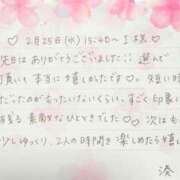 ♡ 2月25日(水) 15:40〜 I様 ♡
先日はありがとうございました! 選んで
頂いて本当に嬉しかったです♡ 短い時
だったのがもったいないくらい、すごく印象に
残る素敵なひとときでした♡ 次はも
少しゆっくり、2人の時間を楽しめたら嬉し
湊